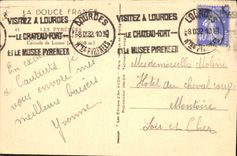 LA DOUCE FRANCE
VISITEZ A LOURDES
LE CHATEAU-FORT
ET LE MUSÉE PYRENEEN
LOURDES
VISITEZ A LOURDES
LE CHATEAU-FORT
ET LE MUSEE PYRENEEN
LOURDES
LES PYR
Cascade de
à
Cauterets
vous envoie mes
meilleurs baisers
Yvonne
Mademoiselle
Hotel du cheval rouge
Montoire
Loir et Cher